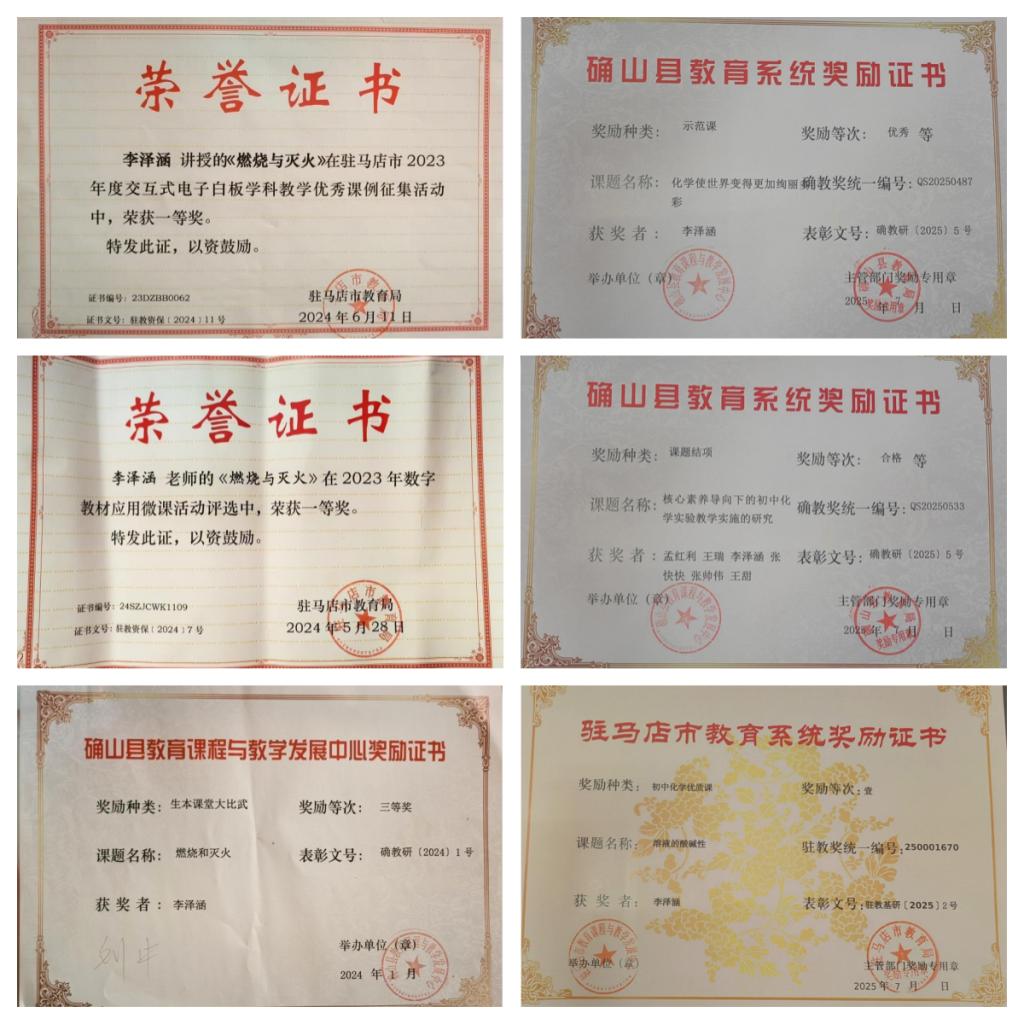 荣誉证书
李泽涵 讲授的《燃烧与灭火》在驻马店市2023
年度交互式电子白板学科教学优秀课例征集活动
中，荣获一等奖。
特发此证，以资鼓励。
证书编号：23DZBB0062
驻马店市教育局
证书文号：驻教资保〔2024〕11号
2024年6月11日
确山县教育系统奖励证书
奖励种类： 示范课
奖励等次： 优秀 等
课题名称： 化学使世界变得更加绚丽多
彩
确教奖统一编号：QS20250487
获奖者： 李泽涵
表彰文号：确教研〔2025〕5号
举办单位（章）
主管部门奖励专用章
2025年 7 月 日
荣誉证书
李泽涵 老师的《燃烧与灭火》在2023年数字
教材应用微课活动评选中，荣获一等奖。
特发此证，以资鼓励。
证书编号：24SZJCWK1109
驻马店市教育局
证书文号：驻教资保〔2024〕7号
2024年5月28日
确山县教育系统奖励证书
奖励种类： 课题结项
奖励等次： 合格 等
课题名称： 核心素养导向下的初中化
学实验教学实施的研究
确教奖统一编号：QS20250533
获奖者： 孟红利 王瑞 李泽涵 张
快快 张帅伟 王甜
表彰文号：确教研〔2025〕5号
举办单位（章）
主管部门奖励专用章
2025年 7 月 日
确山县教育课程与教学发展中心奖励证书
奖励种类： 生本课堂大比武
奖励等次： 三等奖
课题名称： 燃烧和灭火
表彰文号： 确教研〔2024〕1号
获奖者： 李泽涵
举办单位（章）
2024 年 1 月
驻马店市教育系统奖励证书
奖励种类： 初中化学优质课
奖励等次：壹
课题名称： 溶液的酸碱性
驻教奖统一编号：250001670
获奖者： 李泽涵
表彰文号：驻教基研〔2025〕2号
举办单位（章）
主管部门奖励专用章
2025年 7 月 日